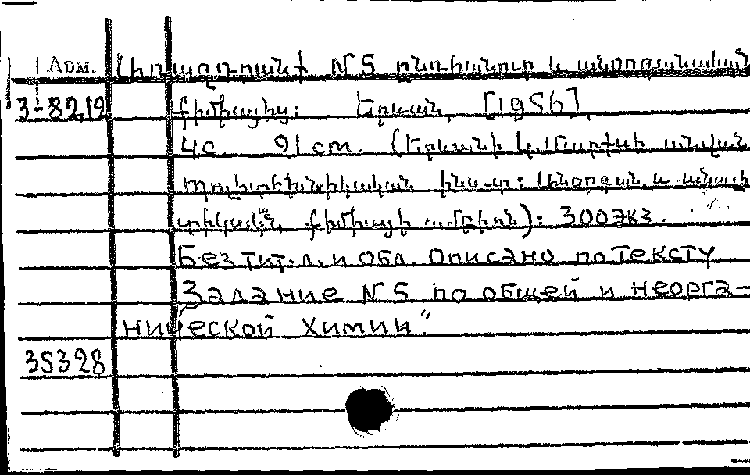 Арм. Լիազդրանք N 5 ընդհանուր և անօրգանական
3-8219 քիմիայից: Երևան, [1956].
4с. 21 cm. (Երևանի Կ. Մարքսի անվան
պոլիտեխնիկական ինստ: Անօրգան. և անալի
տիկական քիմիայի ամբիոն): 300 экз.
Без тит. л. и обл. Описано по тексту
Задание N5 по общей и неорга-
нической химии."
35328